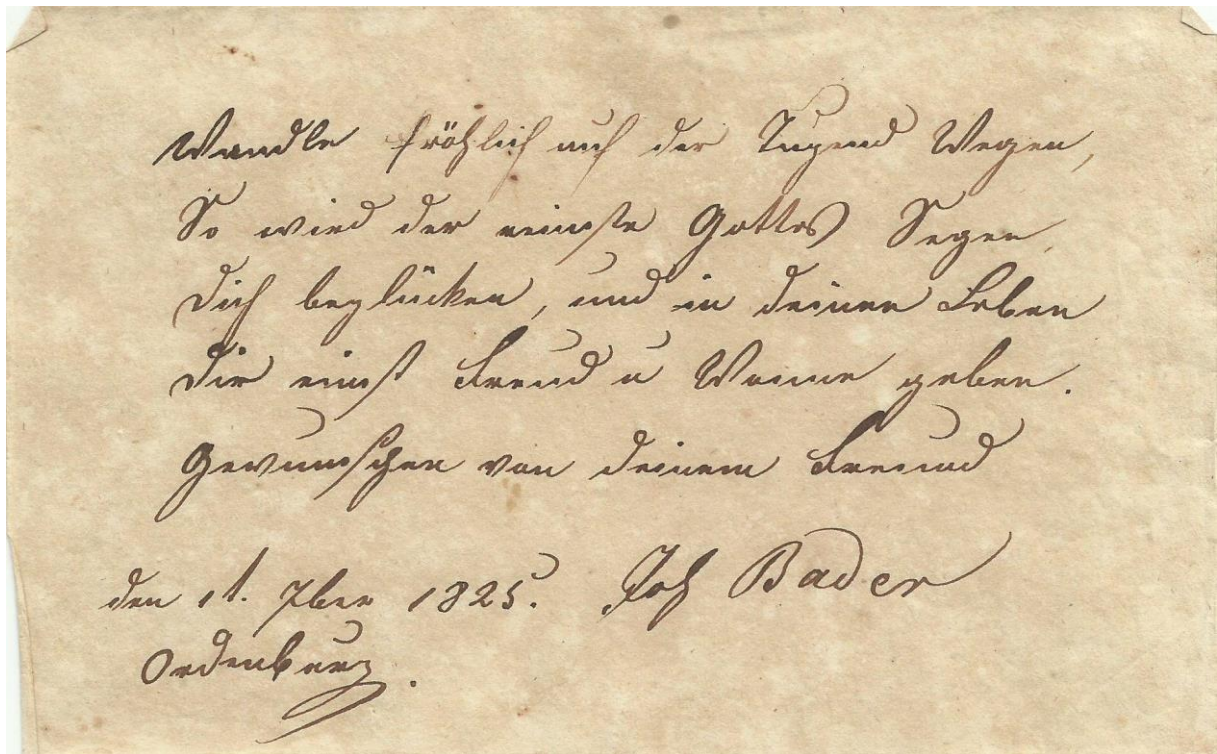 Wandle fröhlich auf der Tugend Wegen,
So wird der reinste Gottes Segen,
Dich beglücken, und in deinen Leben
Dir einst Freud u Wonne geben.
Gewunschen von deinem Freund
den 1t. 7ber 1825. Joh Bader
Ordenburg.